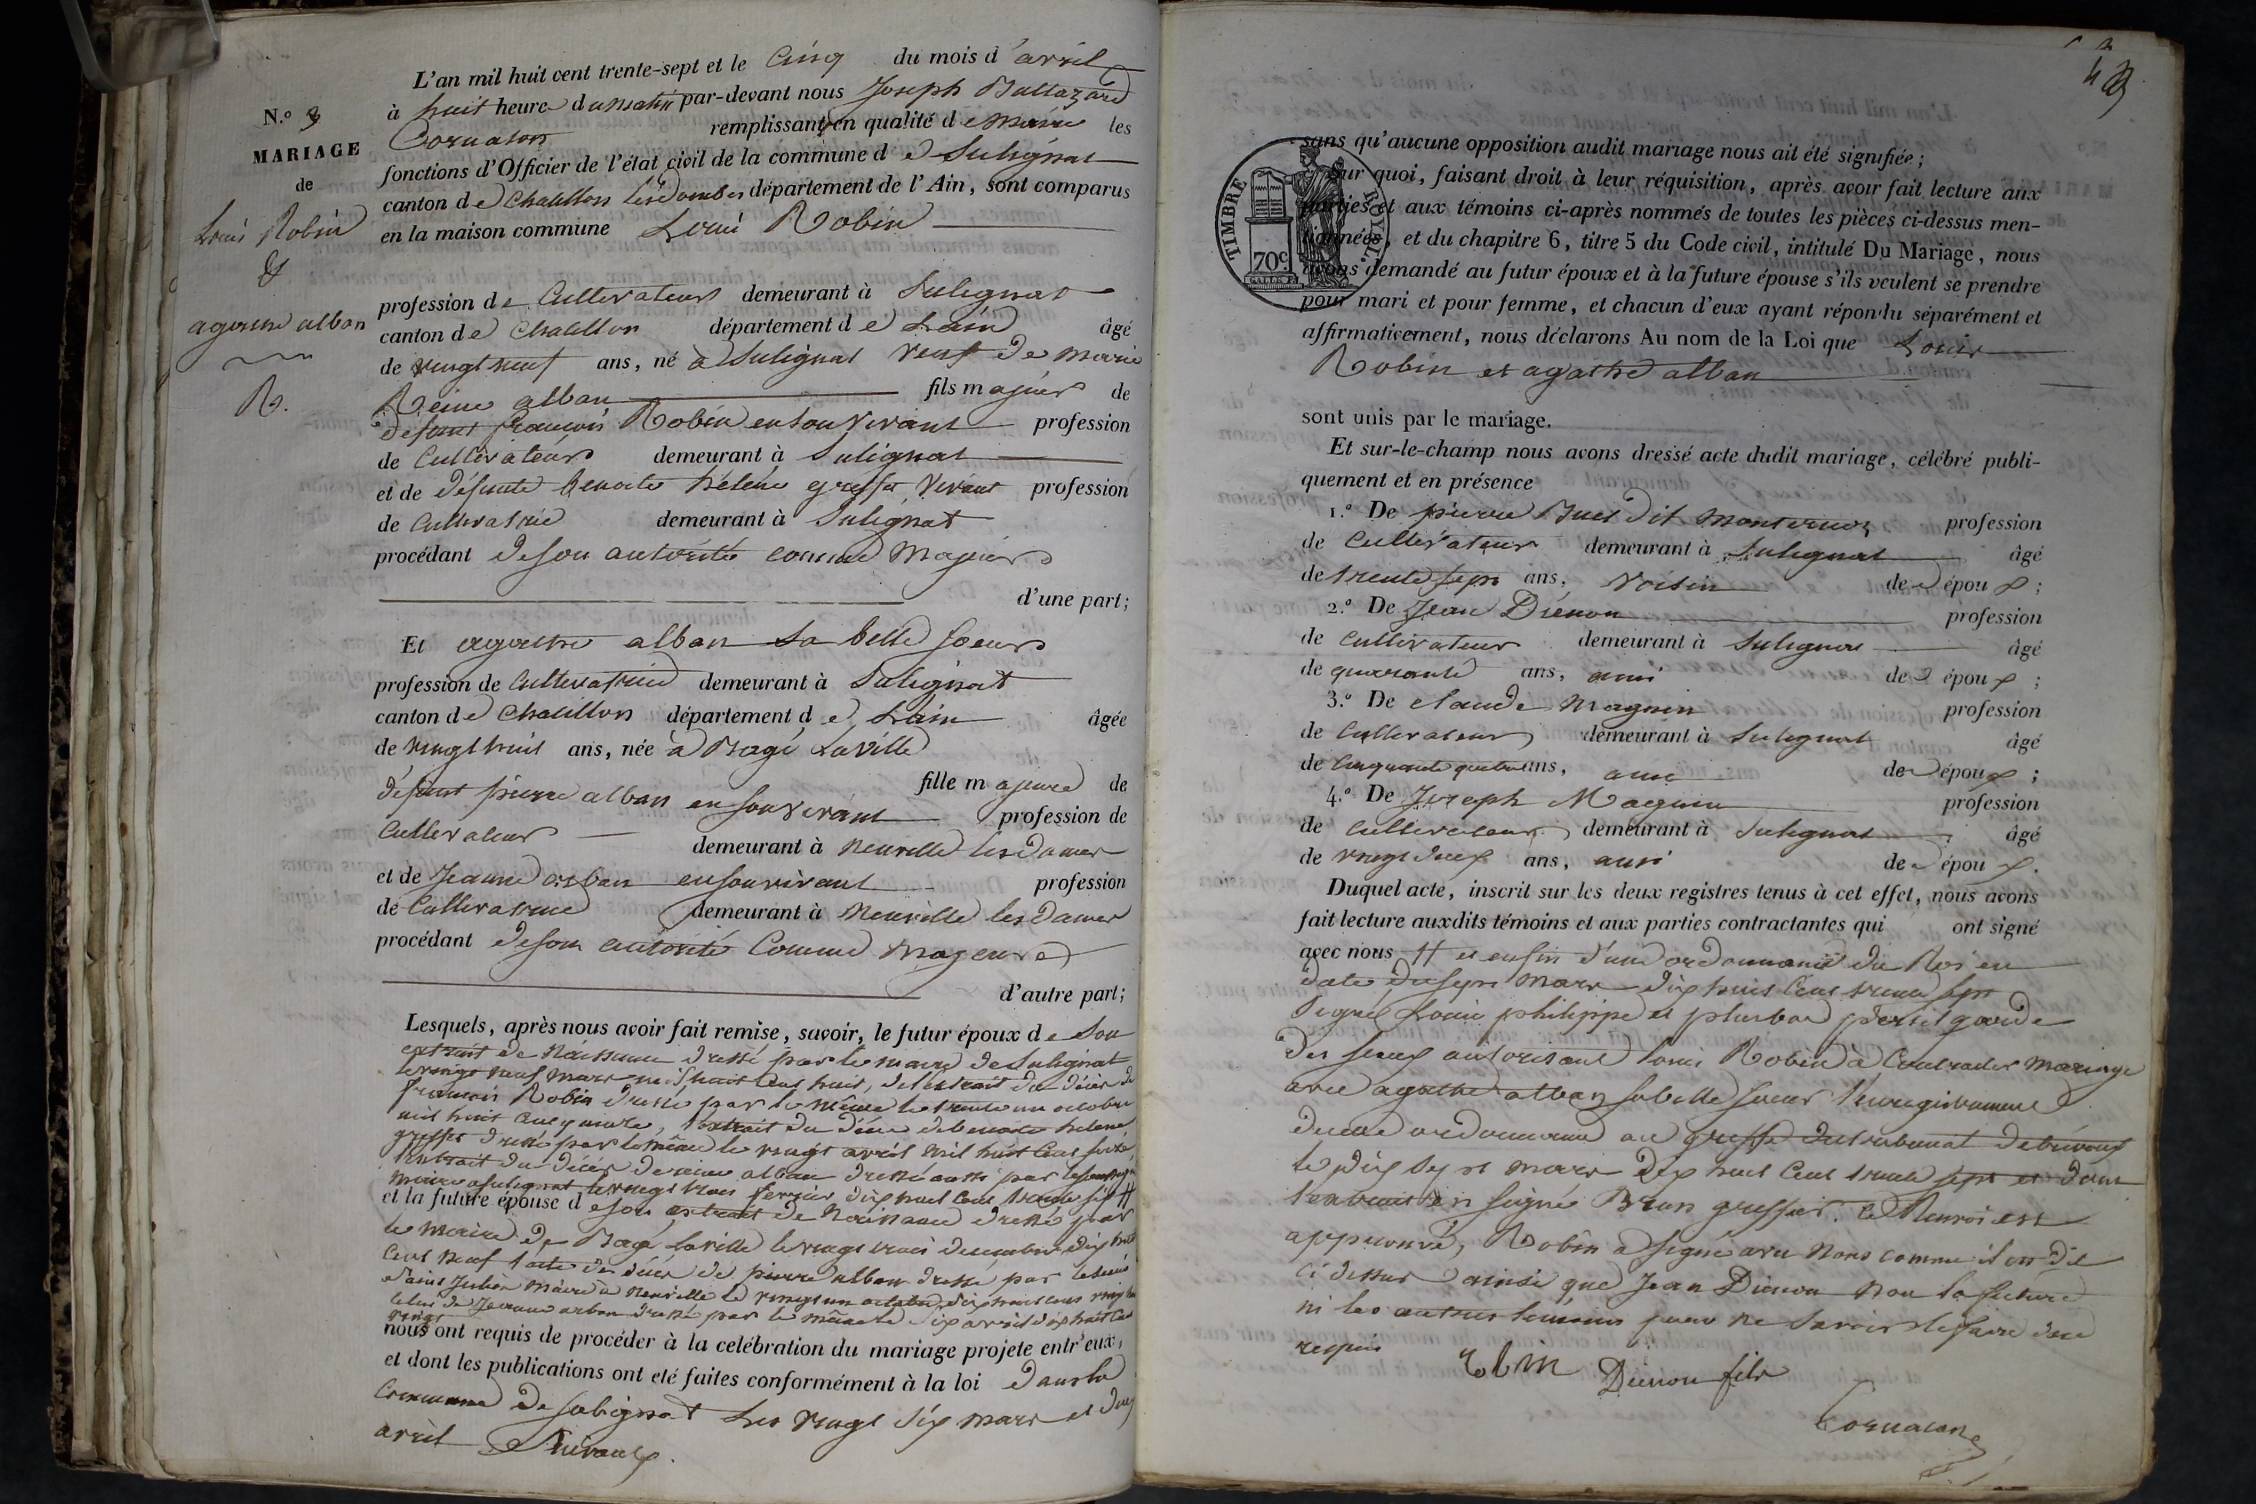 L'an mil huit cent trente-sept et le Cinq du mois d'avril
à huit heure du matin par-devant nous Joseph Baltazard
Cornaton remplissant en qualité de Maire les
fonctions d'Officier de l'état civil de la commune de Sulignat
canton de Chatillon les dombes département de l'Ain, sont comparus
en la maison commune Louis Robin
N.o 3
MARIAGE
de
Louis Robin
&
agathe alban
R.
profession de Cultivateur demeurant à Sulignat
canton de Chatillon département de Lain âgé
de vingt neuf ans, né à Sulignat veuf de Marie
Reine alban fils majeur de
defunt françois Robin en son vivant profession
de Cultivateur demeurant à Sulignat
et de défunte benoite hélène vivant profession
de Cultivatrice demeurant à Sulignat
procédant de son autorité comme Majeur
d'une part;
Et agathe alban sa belle soeur
profession de Cultivatrice demeurant à Sulignat
canton de Chatillon département de Lain âgée
de vingt huit ans, née à Bagé la ville
fille majeure de
défunt pierre alban en son vivant profession de
Cultivateur demeurant à Neuville les dames
et de Jeanne arban en son vivant profession
de Cultivatrice demeurant à Neuville les dames
procédant de son autorité Comme Majeure
d'autre part;
Lesquels, après nous avoir fait remise, savoir, le futur époux de Son
extrait de Naissance dressé par le maire de Sulignat
le vingt neuf mars mil huit cent huit, de l'extrait du décès de
françois Robin dressé par le même le trente un octobre
mil huit cent quatorze, l'extrait du décès de benoite helene
dressé par le même le vingt avril mil huit cent
l'extrait du décès de reine alban dressé aussi par
maire a Sulignat le vingt trois fevrier dix huit cent trente six #
et la future épouse de son extrait de Naissance dressé par
le Maire de Bagé la ville le vingt trois decembre dix huit
cent neuf l'acte de décès de pierre alban dressé par
Julien Maire à Neuville le vingt un octobre dix huit cent vingt
celui de Jeanne arban dressé par le même le dix avril dix huit cent
vingt
nous ont requis de procéder à la celébration du mariage projete entr'eux,
et dont les publications ont eté faites conformément à la loi dans la
Commune de Sulignat les vingt six mars et deux
avril Suivants.
43
TIMBRE ROYAL
70c
sans qu'aucune opposition audit mariage nous ait été signifiée;
Sur quoi, faisant droit à leur réquisition, après avoir fait lecture aux
parties et aux témoins ci-après nommés de toutes les pièces ci-dessus men-
tionnées, et du chapitre 6, titre 5 du Code civil, intitulé Du Mariage, nous
avons demandé au futur époux et à la future épouse s'ils veulent se prendre
pour mari et pour femme, et chacun d'eux ayant répondu séparément et
affirmativement, nous déclarons Au nom de la Loi que Louis
Robin et agathe alban
sont unis par le mariage.
Et sur-le-champ nous avons dressé acte dudit mariage, célébré publi-
quement et en présence
1.o De pierre Buet dit Monternoz profession
de Cultivateur demeurant à Sulignat âgé
de trente sept ans, voisin de l'époux;
2.o De Jean Diénon profession
de Cultivateur demeurant à Sulignat âgé
de quarante ans, ami de l'époux;
3.o De claude Magnin profession
de Cultivateur demeurant à Sulignat âgé
de Cinquante quatre ans, ami de l'époux;
4.o De Joseph Magnin profession
de Cultivateur demeurant à Sulignat âgé
de vingt deux ans, ami de l'époux.
Duquel acte, inscrit sur les deux registres tenus à cet effet, nous avons
fait lecture auxdits témoins et aux parties contractantes qui ont signé
avec nous # et enfin d'une ordonnance du Roi en
date du sept Mars dix huit Cent trente sept
Signé Louis philippe et plus bas persil garde
des sceaux autorisant Louis Robin à Contracter Mariage
avec agathe alban sa belle soeur l'enregistrement
de cette ordonnance au greffe du tribunal de trévoux
le dix sept mars dix huit Cent trente sept et dont
l'extrait en signé Brun greffier. Le Renvoi est
approuvé, Robin a signé avec Nous comme il est dit
ci dessus ainsi que Jean Diénon Non la future
ni les autres témoins pour ne savoir le faire de ce
requis
Rbin Diénon fils
Cornaton